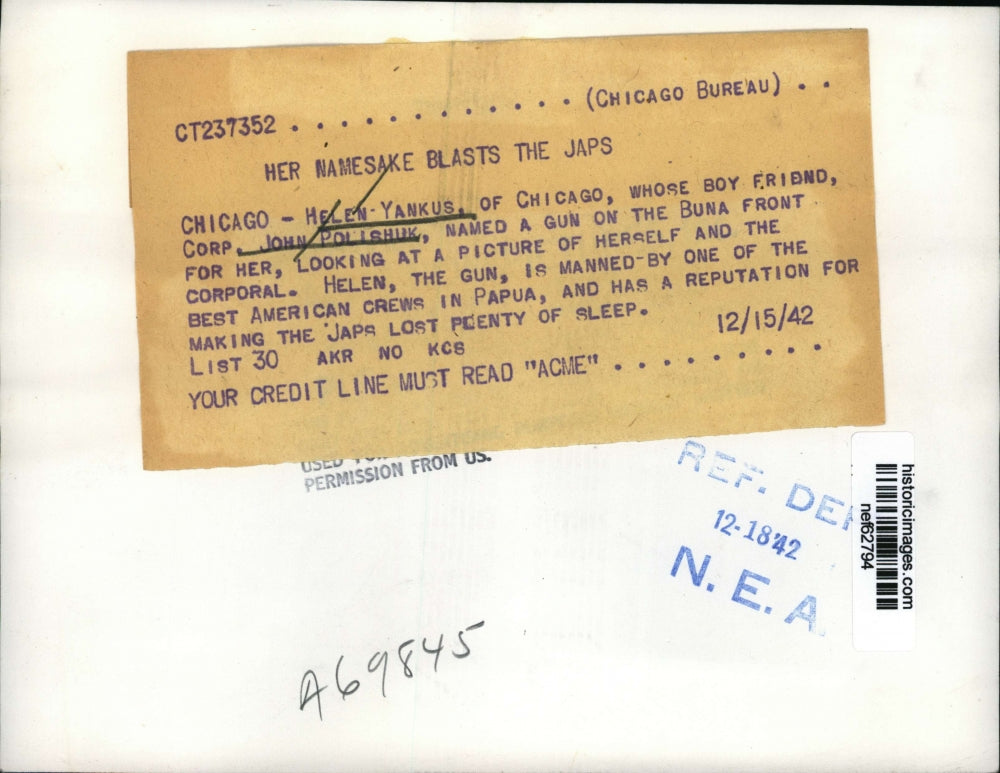 CT237352 . . . . . . . . . . . . (CHICAGO BUREAU) . .
HER NAMESAKE BLASTS THE JAPS
CHICAGO - HELEN YANKUS, OF CHICAGO, WHOSE BOY FRIEND,
CORP. JOHN POLISHUK, NAMED A GUN ON THE BUNA FRONT
FOR HER, LOOKING AT A PICTURE OF HERSELF AND THE
CORPORAL. HELEN, THE GUN, IS MANNED BY ONE OF THE
BEST AMERICAN CREWS IN PAPUA, AND HAS A REPUTATION FOR
MAKING THE JAPS LOST PLENTY OF SLEEP.
LIST 30 AKR NO KCS 12/15/42
YOUR CREDIT LINE MUST READ "ACME" . . . . . . . . .
USED
PERMISSION FROM US.
REF. DE
12-18 42
N. E. A.
historicimages.com
nef62794
A69845